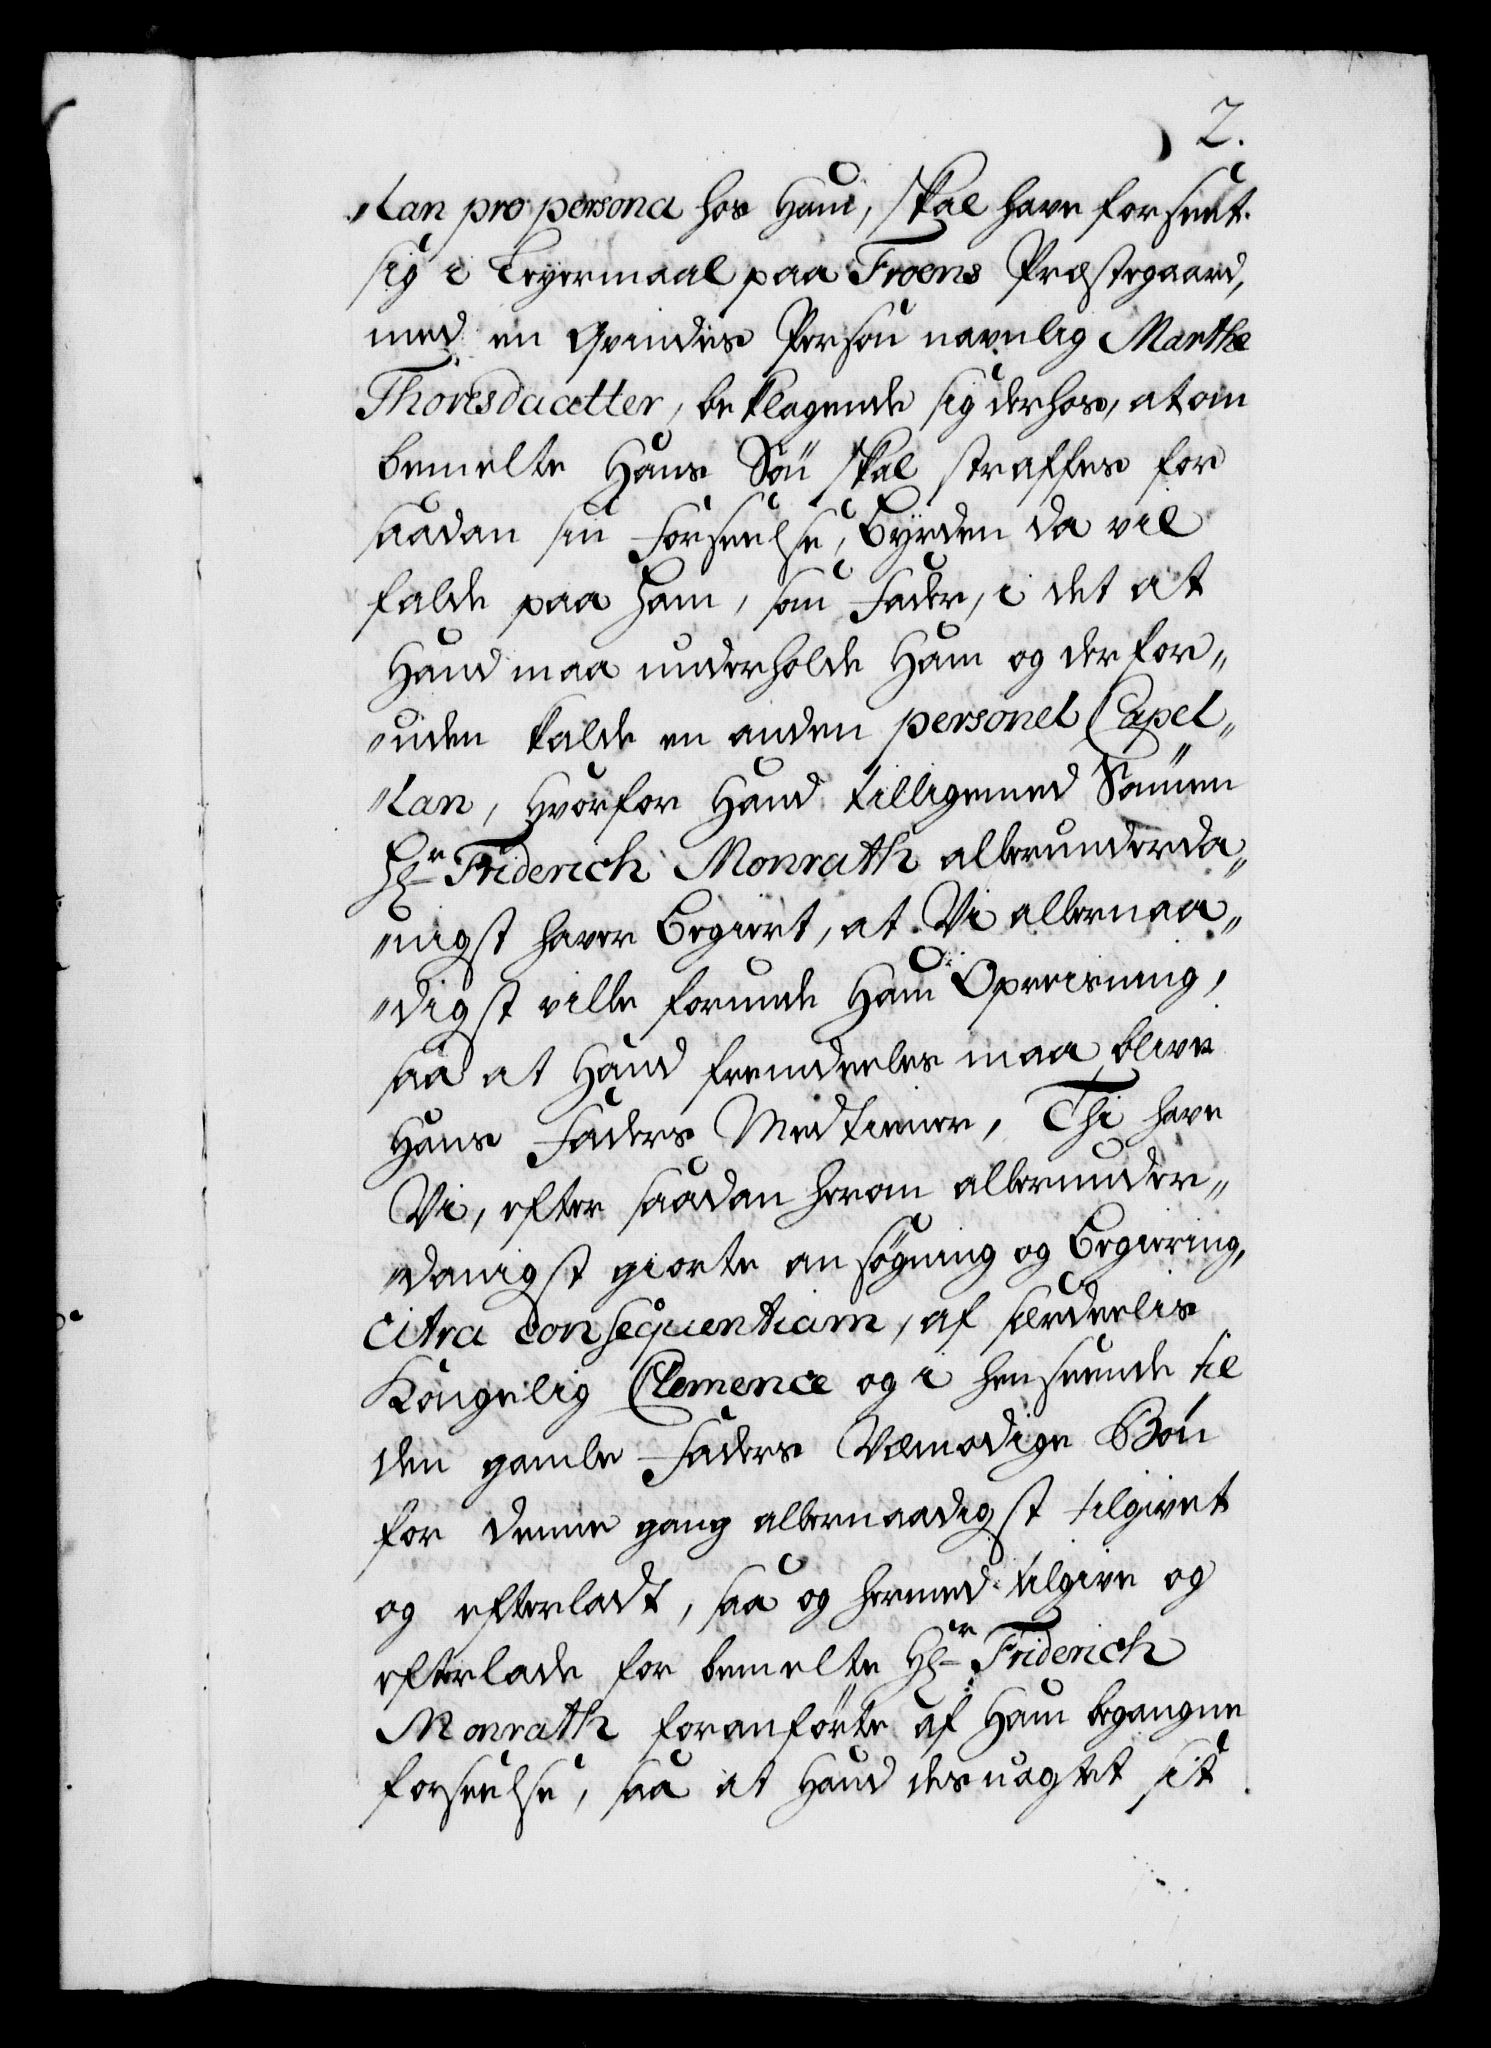 2.
„lan pro persona hos Ham, skal have forseet
sig i Leyermaal paa Froens Præstegaard,
med en Qvindes Person navnlig Marthe
Thoresdaatter, beklagende sig derhos, at om
bemelte Hans Søn skal straffes for
saadan sin Forseelse, Byrden da vil
falde paa Ham, som Fader, i det at
Hand maa underholde Ham og derfor„
„uden kalde en anden personel Capel„
„lan, hvorfor Hand tilligemed Sønnen
Hr Friderich Monrath allerunderda„
„nigst haver Begiert, at Vi allernaa„
„digst ville forunde Ham Opreisning,
saa at Hand fremdeeles maa blive
Hans Faders Medtiener, Thi have
Vi, efter saadan herom allerunder„
„danigst giorte ansøgning og Begiering,
citra consequentiam, af særdeelis
Kongelig Clemence og i henseende til
den gamle Faders Vemodige Bøn
for denne gang allernaadigst tilgivet
og efterladt, saa og hermed tilgive og
efterlade for bemelte Hr Friderich
Monrath foranførte af Ham begangne
forseelse, saa at Hand desuagtet sit